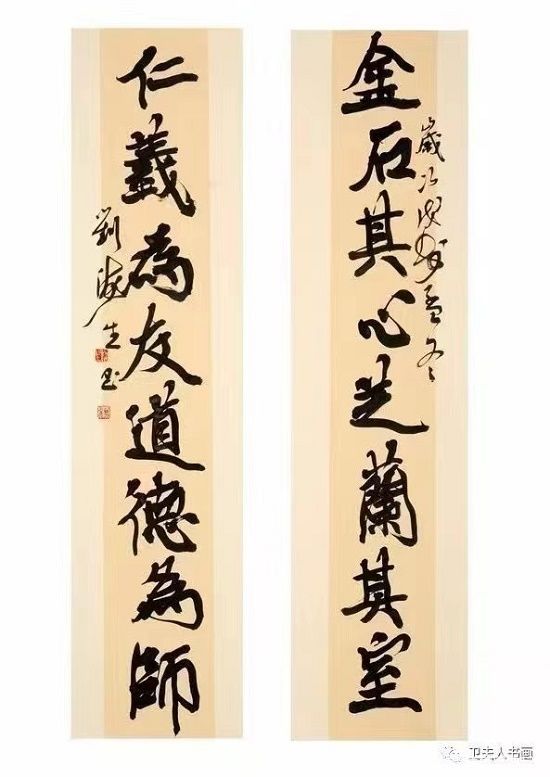 歲次 孟冬
金石其心芝蘭其室
仁義為友道德為師
劉海生书
卫夫人书画